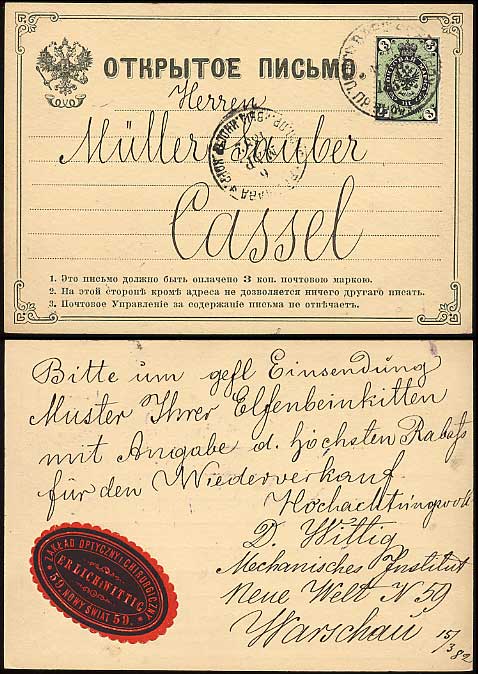 ОТКРЫТОЕ ПИСЬМО
3 3
3 3
Herren
Müller
Cassel
1. Это письмо должно быть оплачено 3 коп. почтовою маркою.
2. На этой сторонѣ кромѣ адреса не дозволяется ничего другаго писать.
3. Почтовое Управленіе за содержаніе письма не отвѣчаетъ.
Bitte um gefl Einsendung
Muster Ihrer Elfenbeinkitten
mit Angabe d. höchsten Rabatts
für den Wiederverkauf
Hochachtungsvoll
D. Wittig
Mechanisches Institut
Neue Welt N 59
Warschau 15/3 82
ZAKŁAD OPTYCZNY I CHIRURGICZNY
ERLICH & WITTIG
59. NOWY ŚWIAT 59.